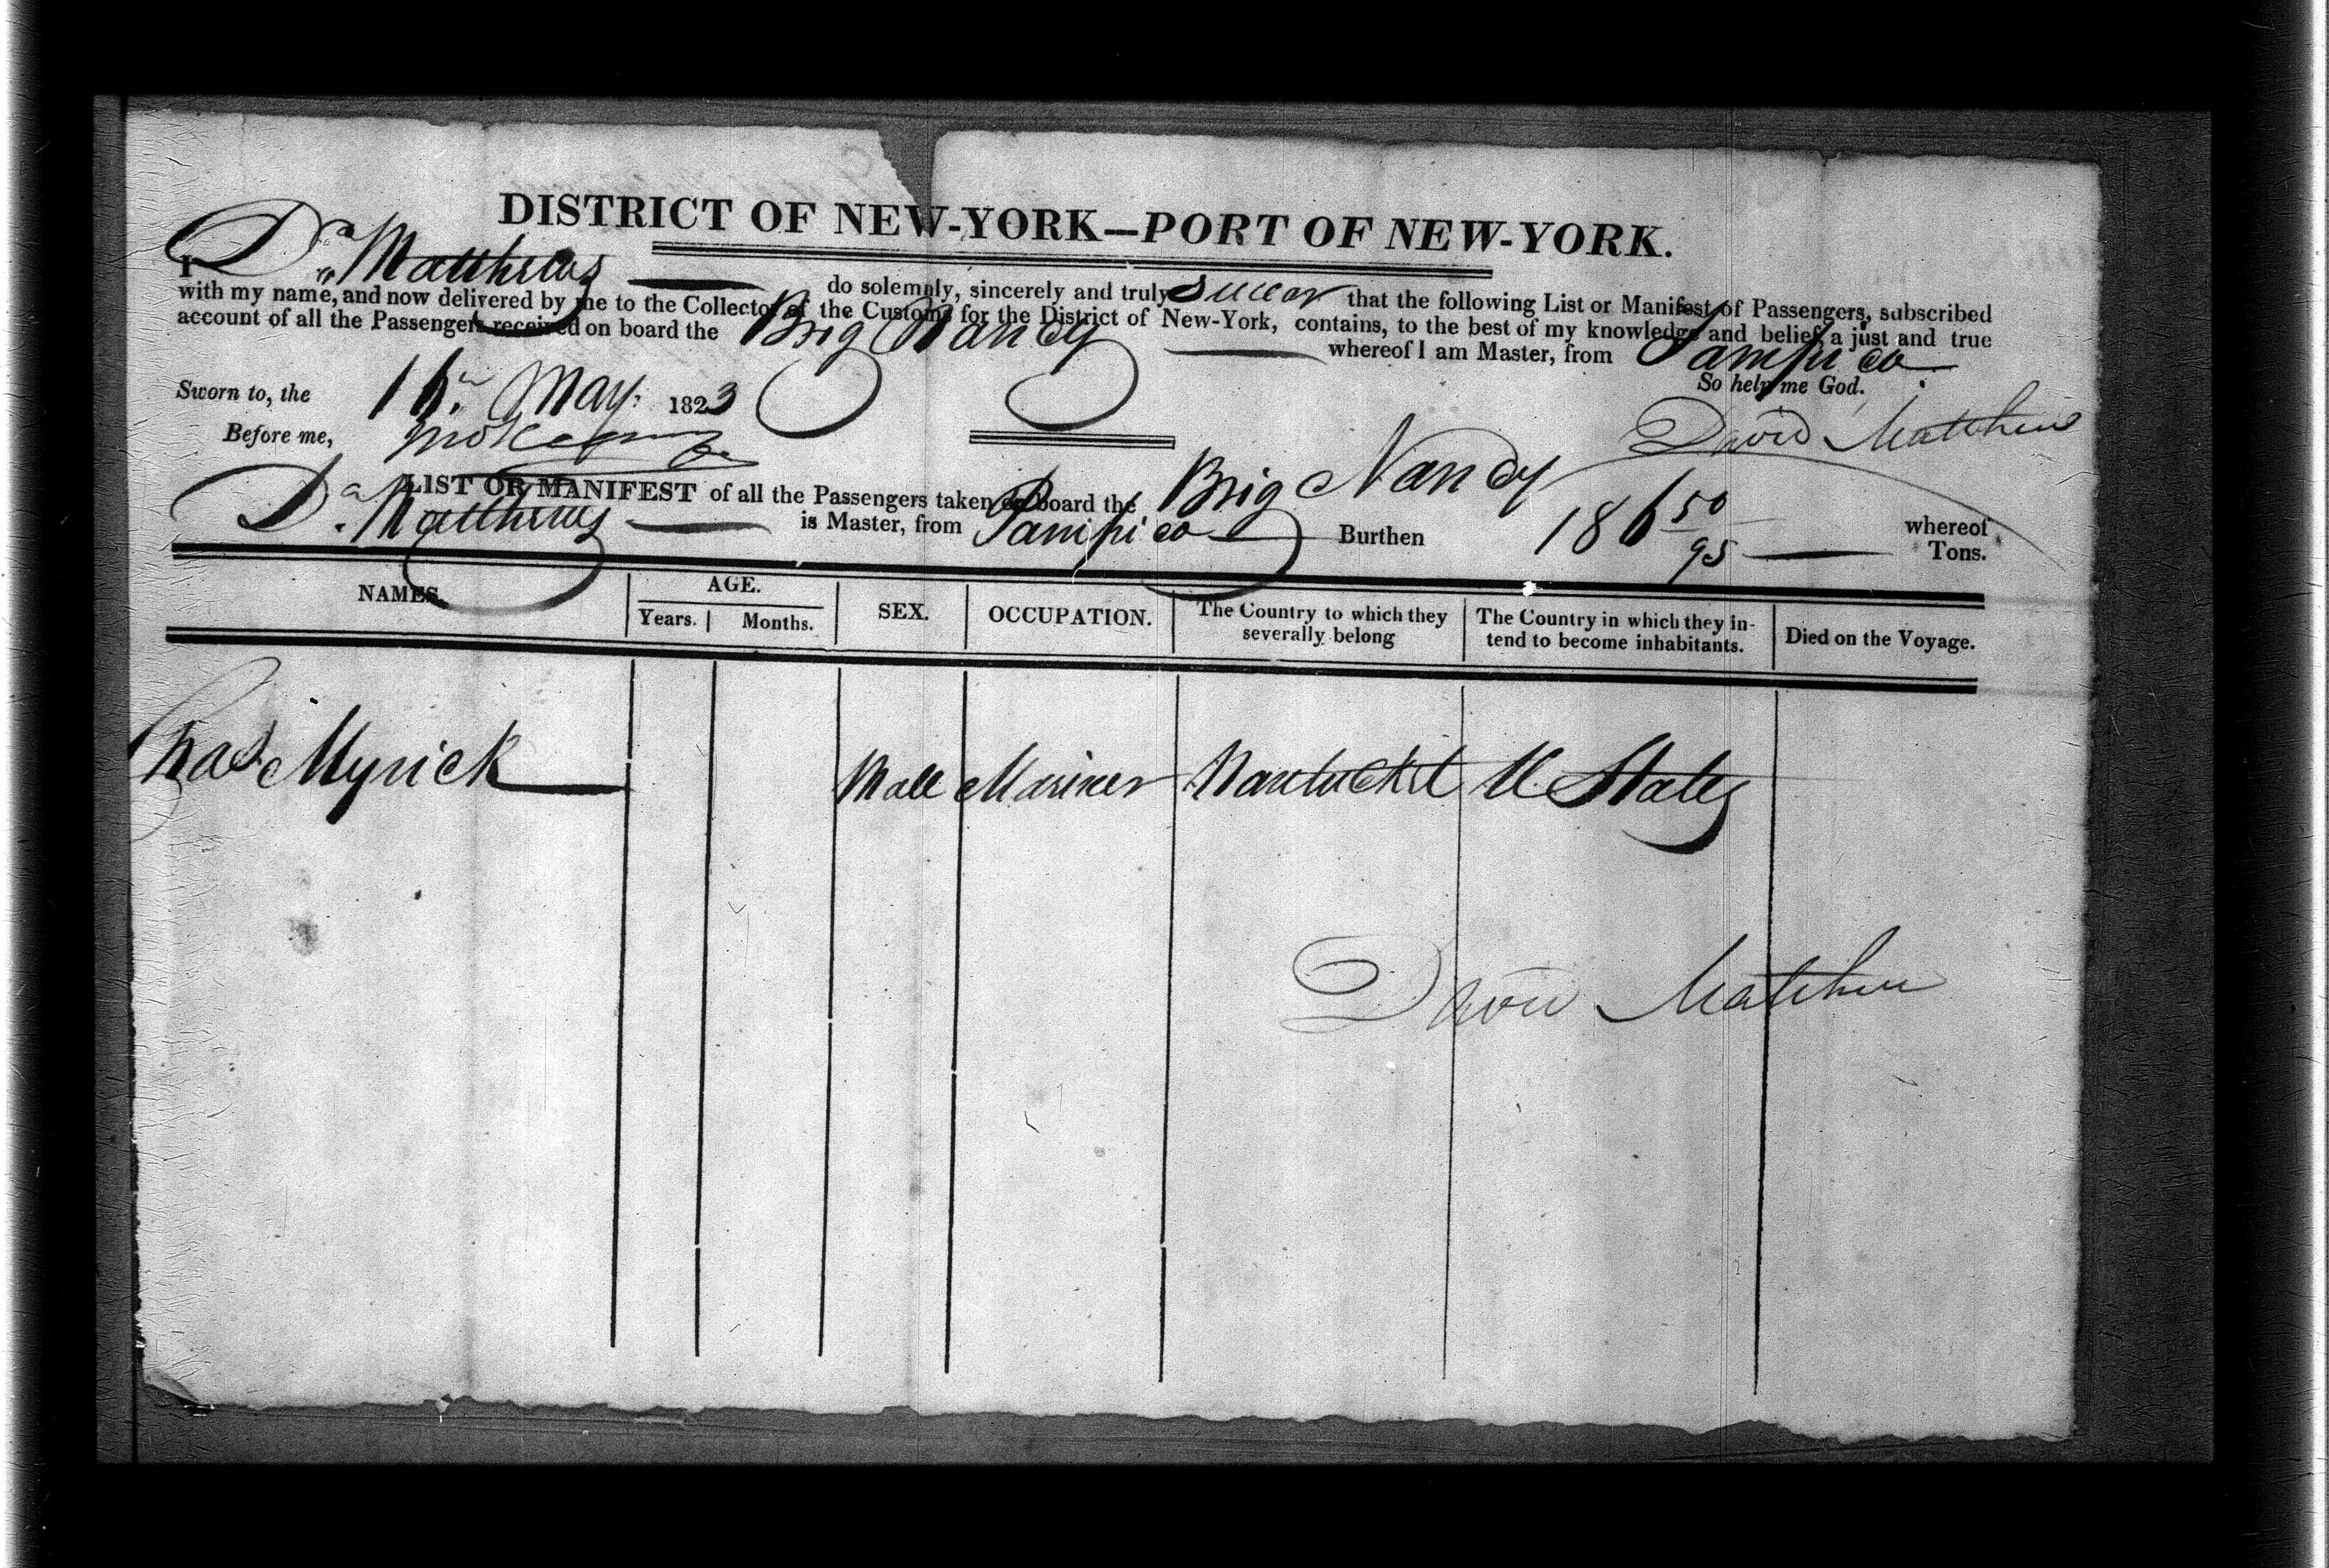 DISTRICT OF NEW-YORK—PORT OF NEW-YORK.
I Da. Matthews do solemnly, sincerely and truly swear that the following List or Manifest of Passengers, subscribed
with my name, and now delivered by me to the Collector of the Customs for the District of New-York, contains, to the best of my knowledge and belief, a just and true
account of all the Passengers received on board the Brig Nancy whereof I am Master, from Tampico
So help me God.
Sworn to, the 16th May. 1823
David Matthews
Before me,
LIST OR MANIFEST of all the Passengers taken on board the Brig Nancy whereof
Da. Matthews is Master, from Tampico Burthen 186 50/95 Tons.
NAMES. AGE. SEX. OCCUPATION. The Country to which they severally belong The Country in which they in-tend to become inhabitants. Died on the Voyage.
Years. Months.
Chas. Myrick Male Mariner Nantucket U. States
David Matthews